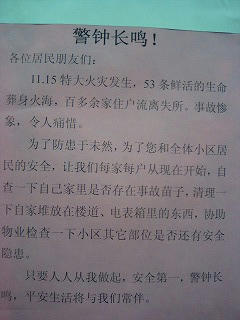 警钟长鸣！
各位居民朋友们：
11.15特大火灾发生，53条鲜活的生命
葬身火海，百多余家住户流离失所。事故惨
象，令人痛惜。
为了防患于未然，为了您和全体小区居
民的安全，让我们每家每户从现在开始，自
查一下自己家里是否存在事故苗子，清理一
下自家堆放在楼道、电表箱里的东西，协助
物业检查一下小区其它部位是否还有安全
隐患。
只要人人从我做起，安全第一，警钟长
鸣，平安生活将与我们常伴。